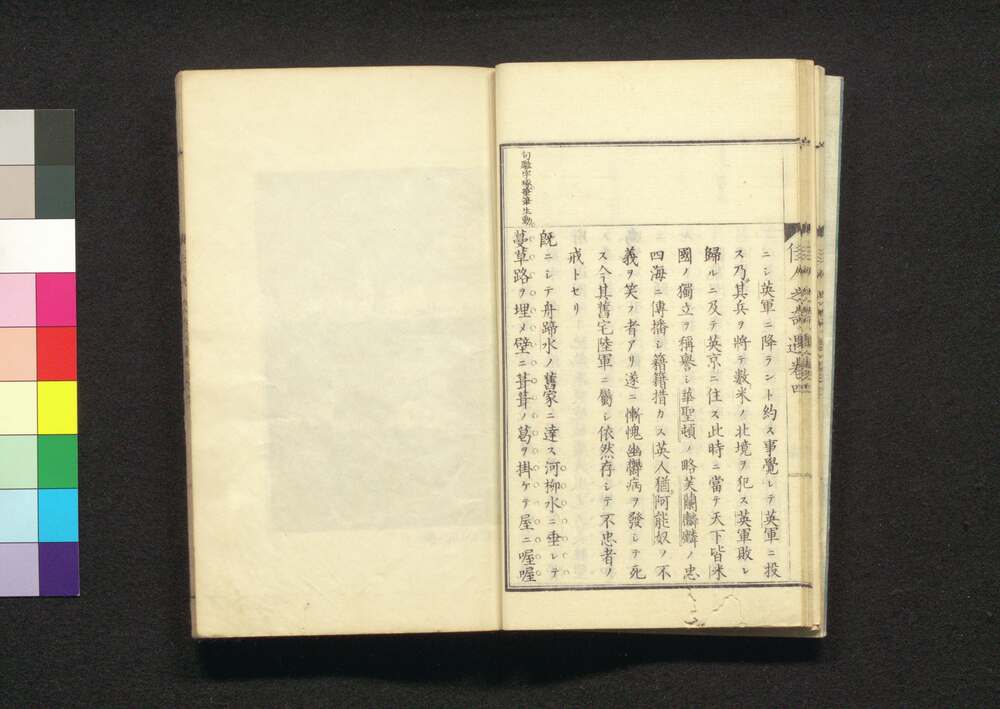 佳人之奇遇卷四
ニシ英軍ニ降ラント約ス事覺レテ英軍ニ投
ス乃其兵ヲ將テ數米ノ北境ヲ犯ス英軍敗レ
歸ルニ及テ英京ニ住ス此時ニ當テ天下皆米
國ノ獨立ヲ稱譽シ華聖頓ノ略芙蘭麟ノ忠
四海ニ傳播シ籍籍措カス英人猶阿能奴ノ不
義ヲ笑フ者アリ遂ニ慚愧幽欝病ヲ發シテ死
ス今其舊宅陸軍ニ屬シ依然存シテ不忠者ノ
戒トセリ
既ニシテ舟蹄水ノ舊家ニ達ス河柳水ニ垂レテ
蔓草路ヲ埋メ壁ニ葺葺ノ葛ヲ掛ケテ屋ニ喔喔
生動